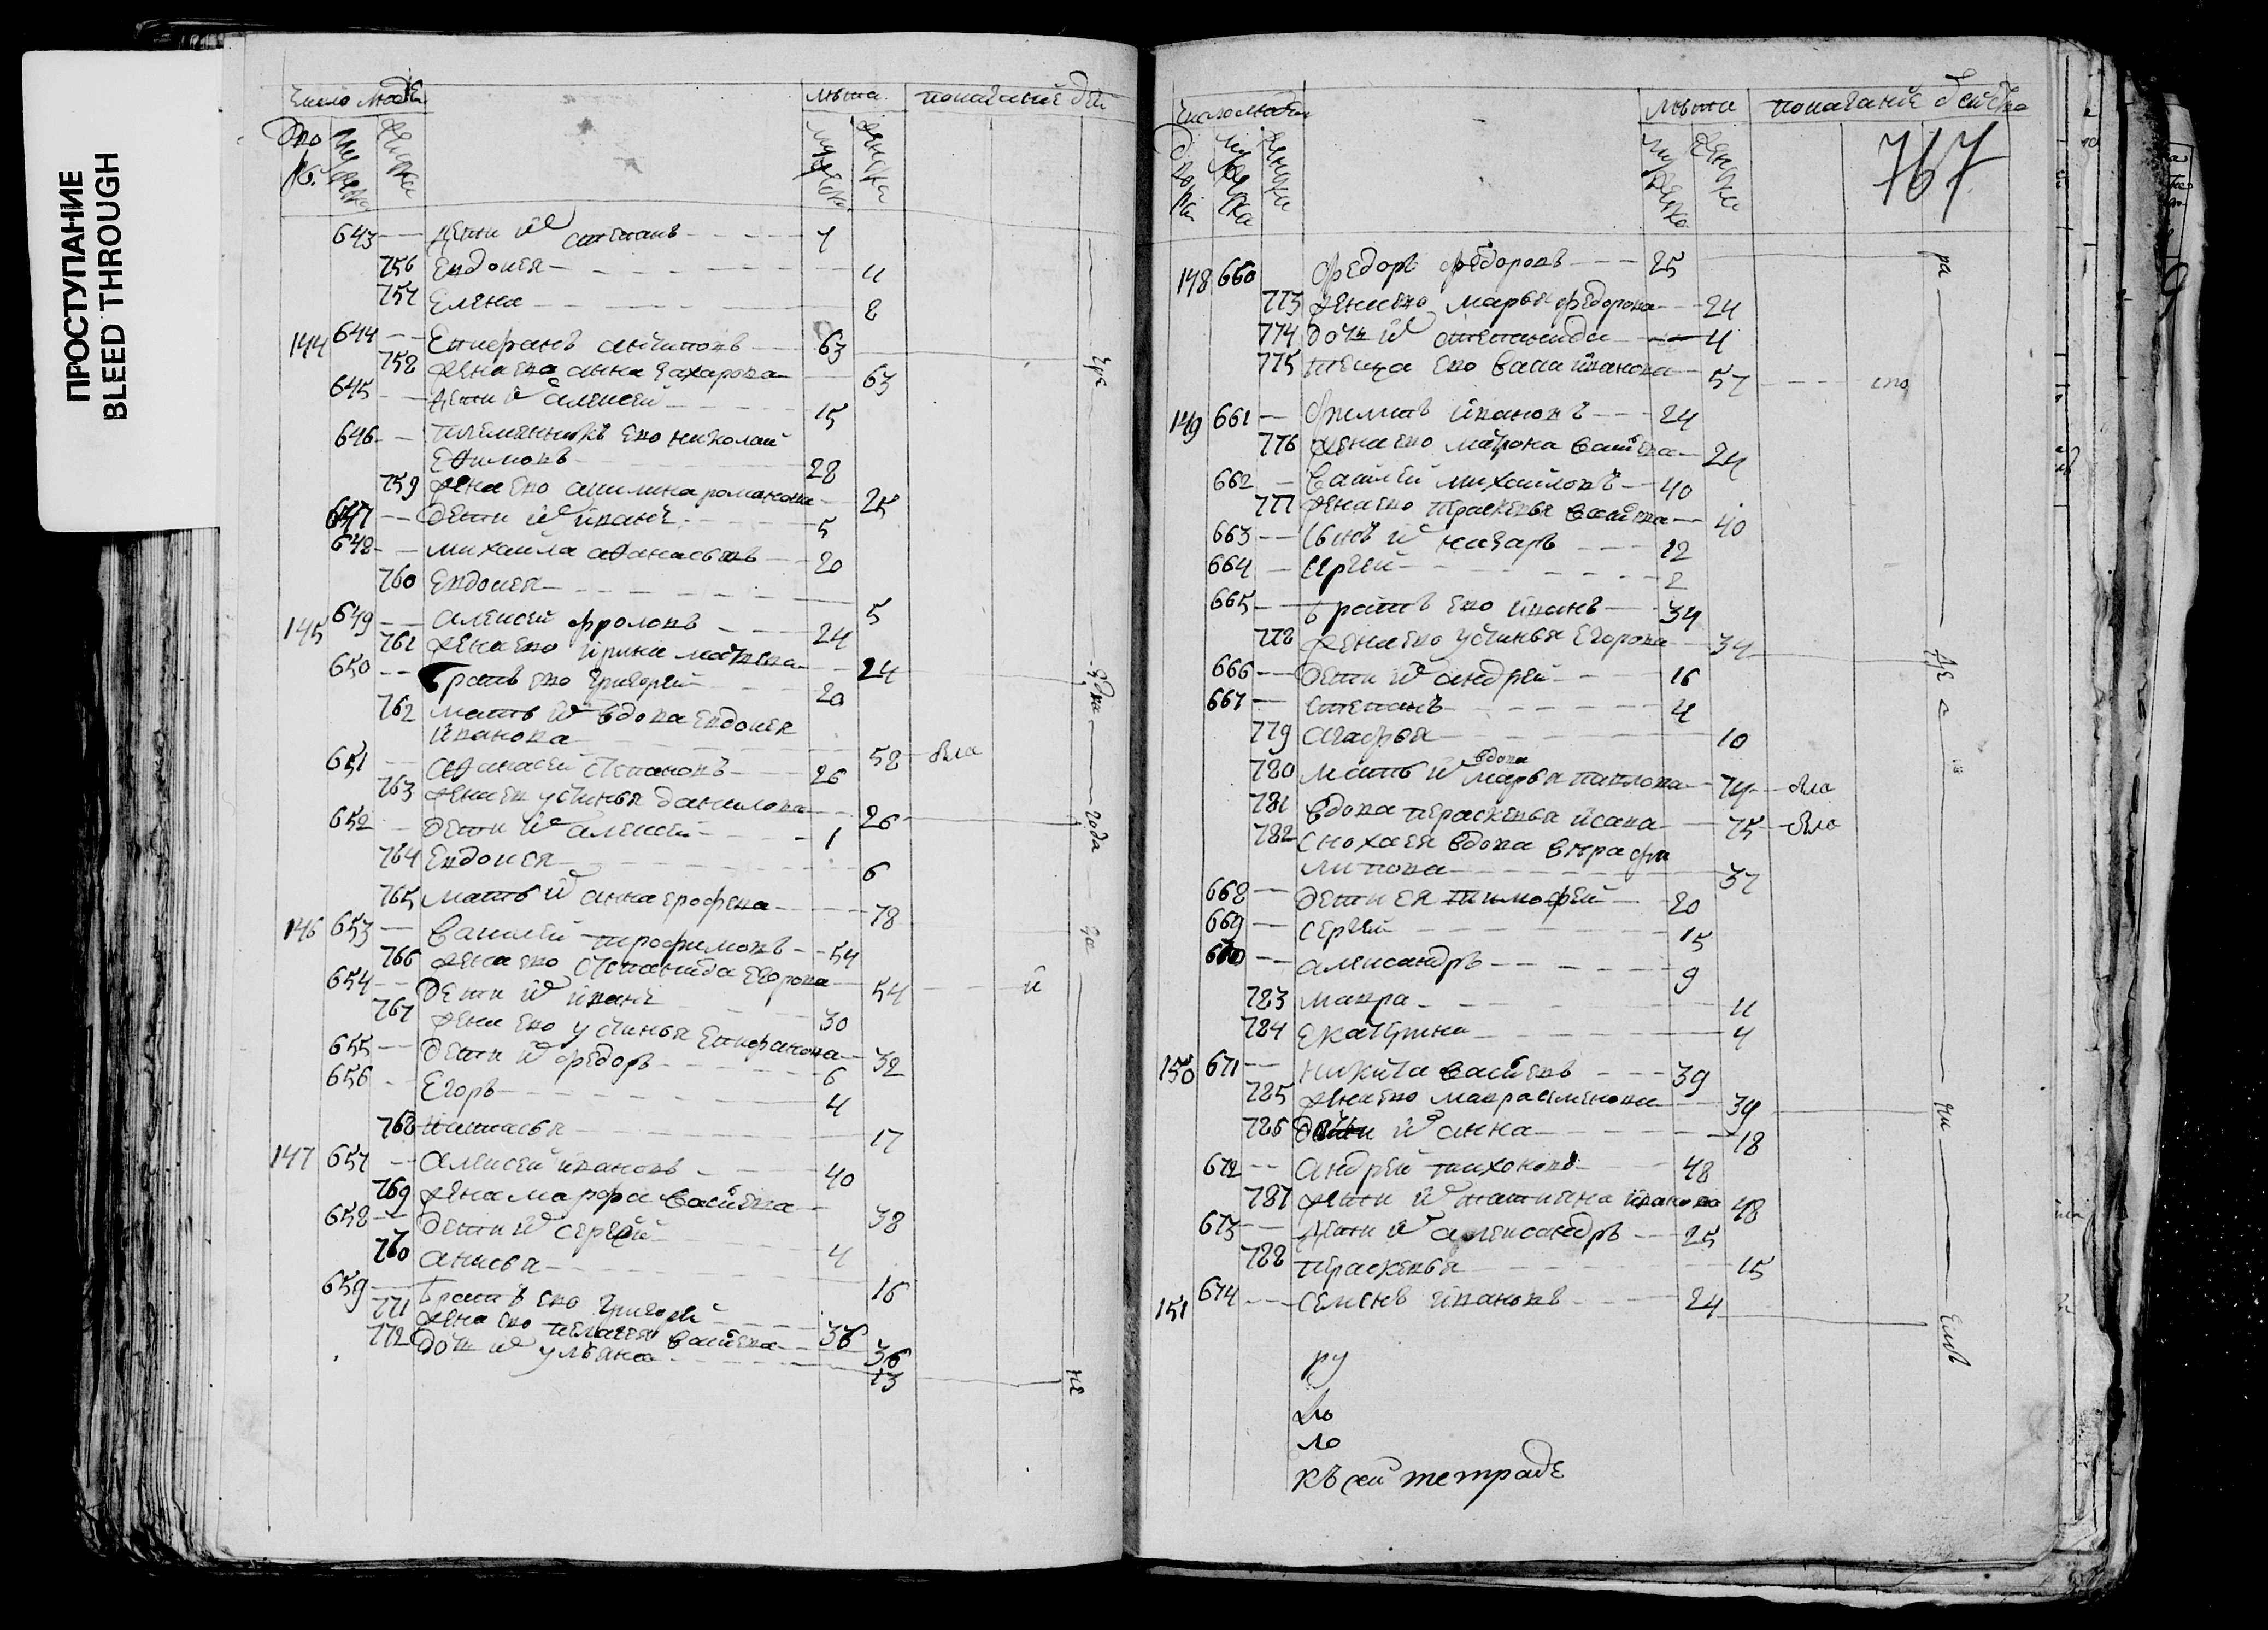 ПРОСТУПАНИЕ
BLEED THROUGH
число людей
лѣта
показание дей
643 — дети и͠ степанъ — 7
756 Евдокея — 11
757 Елена — 8
144 644 — Епифанъ антиповъ — 63
758 жена ево анна захарова — 63
645 — дети и͠ алексей — 15
646 — племянникъ ево николай
Ефимовъ — 28
759 жена ево акилина романова — 25
647 — дети и͠ иванъ — 5
648 — михаила афанасьевъ — 20
760 Евдокея — 5
145 649 — алексей фроловъ — 24
761 жена ево ирина матвева — 24
650 — братъ ево григорей — 20
762 мать и͠ вдова евдокея
иванова — 58 — была
651 — афанасей степановъ — 26
763 жена ев устинья данилова — 26
652 — дети и͠ алексей — 1
764 Евдокея — 6
765 мать и͠ анна ерофева — 78
146 653 — василей трофимовъ — 54
766 жена ево степанида егорова — 54 — и
654 — дети и͠ иванъ — 30
767 жена ево устинья епифанова — 32
655 — дети и͠ федоръ — 6
656 — Егоръ — 4
768 настасья — 17
147 657 — алексей ивановъ — 40
769 жена марфа васиева — 38
658 — дети и͠ сергей — 4
770 анисья — 16
659 — братъ ево григорей — 36
771 жена ево пелагея васиева — 36
772 дочь и͠ ульяна — 13
чре
здва
года
за
не
число людей
лѣта
показание действа
767
148 660 федоръ федоровъ — 25
773 жена ево марья федорова — 24
774 дочь и͠ степанида — 4
775 теща ево васа иванова — 57
149 661 — филипъ ивановъ — 24
776 жена ево матрона васиева — 24
662 — василей михаиловъ — 40
777 жена ево праскевья васиева — 40
663 — сынъ и͠ назаръ — 12
664 — сергей — 2
665 — братъ ево иванъ — 34
778 жена ево устинья егорова — 34
666 — дети и͠ андрей — 16
667 — степанъ — 4
779 агафья — 10
780 мать и͠ вдова марья павлова — 74 — была
781 вдова праскевья исаева — 75 — была
782 сноха ея вдова
— 37
668 — дети ея тимофей — 20
669 — сергей — 15
670 — александръ — 9
783 мавра — 11
784 екатерина — 4
150 671 — никита васиевъ — 39
785 жена ево мавра семенова — 39
786 дочь и͠ анна — 18
672 — андрей тихоновъ — 48
787 жена и͠ татияна иванова 48
673 — дети и͠ александръ — 25
788 праскевья — 15
151 674 — семенъ ивановъ — 24
ру
ло
къ сей тетраде